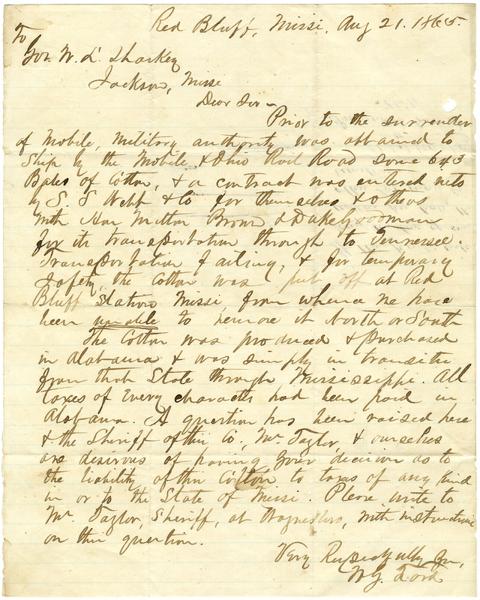 Red Bluff, Missi, Aug 21. 1865.
To
Gov. W. L. Sharkey
Jackson, Misse
Dear Sir —
Prior to the surrender
of Mobile, Military authority was obtained to
Ship by the Mobile & Ohio Rail Road some 643
Bales of Cotton, & a contract was entered into
by S. S. Webb & Co for themselves & others
with Hon Milton Brown & Duke Goodman
for its transportation through to Tennessee.
Transportation failing, & for temporary
safety, the Cotton was put off at Red
Bluff Station Missi, from whence we have
been unable to remove it North or South
The Cotton was produced & purchased
in Alabama & was simply in transitu
from that State through Mississippi. All
taxes of every character had been paid in
Alabama. A question has been raised here
& the Sheriff of this Co. Mr Taylor & ourselves
are desirous of having your decision as to
the liability of this Cotton to taxes of any kind
in or to the State of Missi. Please write to
Mr. Taylor, Sheriff, at, with instructions
on this question.
Very Respectfully Yrs,
W. G. Ford